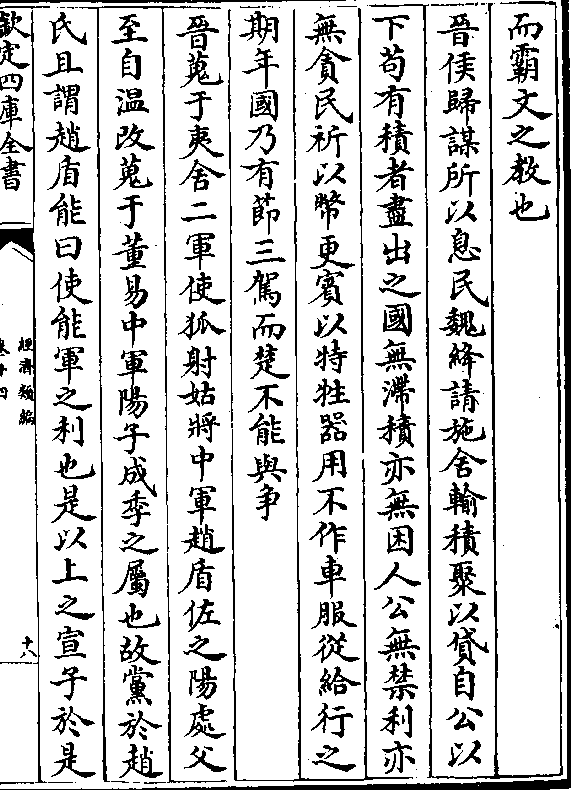 而霸文之教也
晉侯歸謀所以息民魏絳請施舍輸積聚以貸自公以
下苟有積者盡出之國無滯積亦無困人公無禁利亦
無貪民祈以幣更賓以特牲器用不作車服從給行之
期年國乃有節三駕而楚不能與争
晉蒐于夷舍二軍使狐射姑將中軍趙盾佐之陽處父
至自温改蒐于董易中軍陽子成季之屬也故黨於趙
氏且謂趙盾能曰使能軍之利也是以上之宣子於是
欽定四庫全書
經濟類編
卷十四
十八